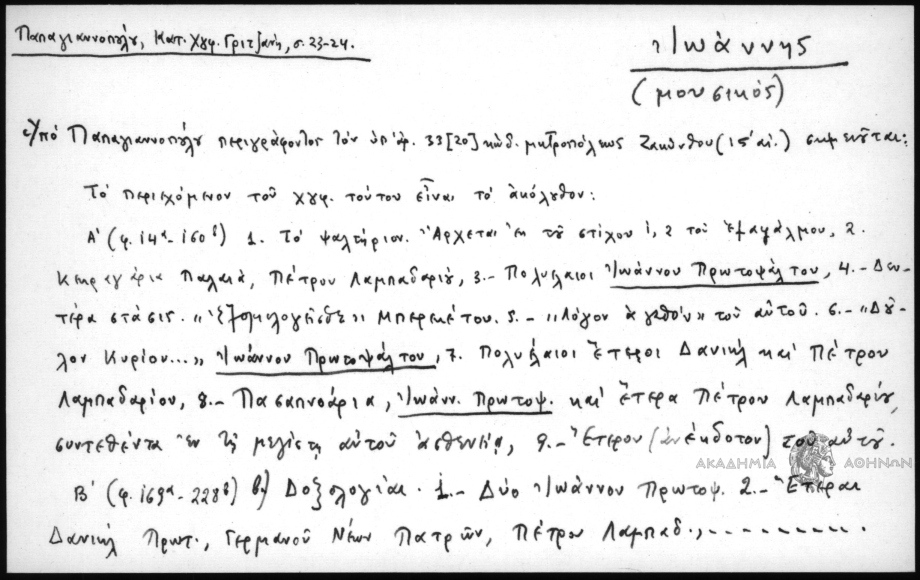 Παπαγιαννοπούλου, Κατ. χγφ. Γριτζάνη, σ. 23-24.
Ἰωάννης
(μουσικός)
Ὑπό Παπαγιαννοπούλου περιγράφοντος τόν ὑπ' ἀρ. 33[20] κώδ. μητροπόλεως Ζακύνθου (15' αἰ.) σημειοῦται:
Τό περιεχόμενον τοῦ χγφ. τούτου εἶναι τό ἀκόλουθον:
Α' (φ. 14α-160β) 1. Τό ψαλτήριον. Ἄρχεται ἐκ τοῦ στίχου 1, 2 τοῦ 2.
Κεκραγάρια Παλαιά, Πέτρου Λαμπαδαρίου, 3.- Πολυέλαιοι Ἰωάννου Πρωτοψάλτου, 4.- Δευ-
τέρα στάσις. "Ἐξομολογεῖσθε" Μπερεκέτου. 5.- "Λόγον ἀγαθόν" τοῦ αὐτοῦ. 6.- "Δοῦ-
λοι Κυρίου..." Ἰωάννου Πρωτοψάλτου, 7. Πολυέλαιοι ἕτεροι Δανιήλ καί Πέτρου
Λαμπαδαρίου, 8.- Πασαπνοάρια, Ἰωάνν. Πρωτοψ. καί ἕτερα Πέτρου Λαμπαδαρίου,
συντεθέντα ἐν τῇ μεγίστῃ αὐτοῦ ἀσθενείᾳ, 9.- Ἕτερον (ἀνέκδοτον) τοῦ αὐτοῦ.
ΑΚΑΔΗΜΙΑ ΑΘΗΝΩΝ
Β' (φ. 169α-228β) β) Δοξολογίαι. 1.- Δύο Ἰωάννου Πρωτοψ. 2.- Ἕτεραι
Δανιήλ Πρωτ., Γερμανοῦ Νέων Πατρῶν, Πέτρου Λαμπαδ., ---------.